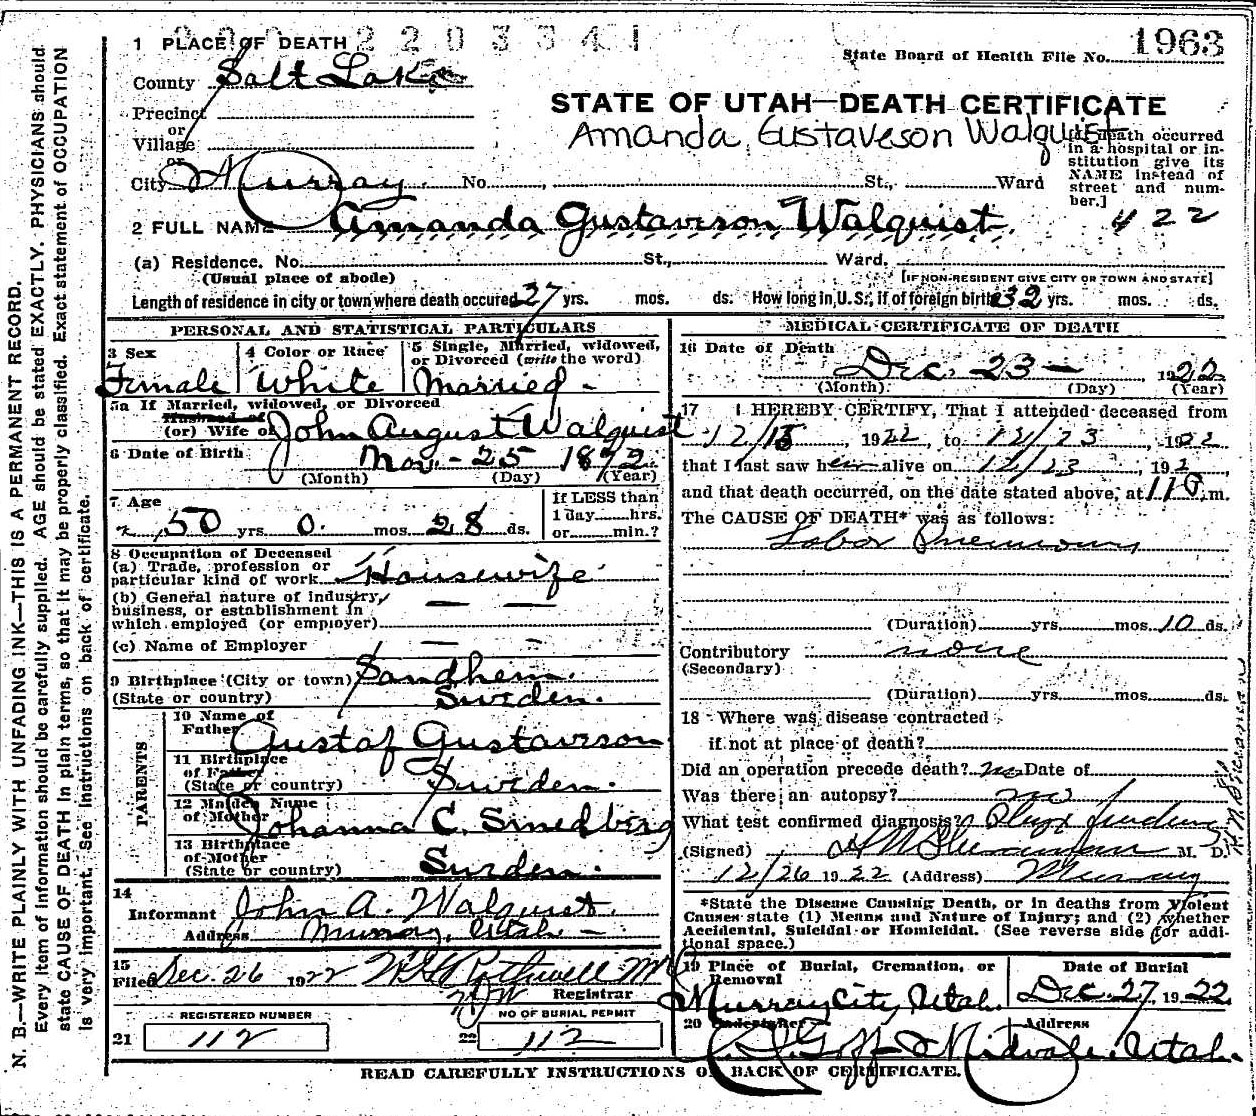 2203341
1 PLACE OF DEATH
State Board of Health File No. 1963
County Salt Lake
STATE OF UTAH—DEATH CERTIFICATE
Precinct
or
Amanda Gustaveson Walquist
Village
or
City Murray. No. St., Ward
[If death occurred in a hospital or institution give its NAME instead of street and number.]
422
2 FULL NAME Amanda Gustaveson Walquist.
(a) Residence. No. St., Ward.
(Usual place of abode) [IF NON-RESIDENT GIVE CITY OR TOWN AND STATE]
Length of residence in city or town where death occured 27 yrs. mos. ds. How long in U.S., if of foreign birth 32 yrs. mos. ds.
PERSONAL AND STATISTICAL PARTICULARS
3 Sex
Female
4 Color or Race
White
5 Single, Married, widowed, or Divorced (write the word)
Married -
5a If Married, widowed, or Divorced
Husband of
(or) Wife of John August Walquist
6 Date of Birth Nov. - 25 1872.
(Month) (Day) (Year)
7 Age
50 yrs. 0. mos. 28 ds.
If LESS than
1 day hrs.
or min.?
8 Occupation of Deceased
(a) Trade, profession or
particular kind of work Housewife
(b) General nature of Industry,
business, or establishment in
which employed (or employer) — —
(c) Name of Employer — -
9 Birthplace (City or town) Sandhem.
(State or country) Sweden.
PARENTS
10 Name of
Father Gustaf Gustaveson
11 Birthplace
of Father
(State or country) Sweden.
12 Maiden Name
of Mother Johanna C. Smedberg
13 Birthplace
of Mother
(State or country) Sweden.
14
Informant John A. Walquist.
Address Murray, Utah -
15
Filed Dec. 26 1922
Registrar
REGISTERED NUMBER
21 112
NO OF BURIAL PERMIT
22 112
MEDICAL CERTIFICATE OF DEATH
16 Date of Death
Dec. 23 — 1922
(Month) (Day) (Year)
17 I HEREBY CERTIFY, That I attended deceased from
12/15, 1922, to 12/23, 1922
that I last saw her alive on 12/23, 192
and that death occurred, on the date stated above, at 11 m.
The CAUSE OF DEATH* was as follows:
Lobar Pneumonia
(Duration) yrs. mos. 10 ds.
Contributory none
(Secondary)
(Duration) yrs. mos. ds.
18 Where was disease contracted
if not at place of death?
Did an operation precede death? no Date of
Was there an autopsy? no
What test confirmed diagnosis?
(Signed) M. D.
12/26 1922 (Address) Murray
*State the Disease Causing Death, or in deaths from Violent
Causes state (1) Means and Nature of Injury; and (2) whether
Accidental, Suicidal or Homicidal. (See reverse side for addi-
tional space.)
19 Place of Burial, Cremation, or
Removal
Murray City, Utah.
Date of Burial
Dec. 27, 1922.
20 Undertaker Goff
Address
Midvale, Utah.
READ CAREFULLY INSTRUCTIONS ON BACK OF CERTIFICATE.
N. B.—WRITE PLAINLY WITH UNFADING INK—THIS IS A PERMANENT RECORD.
Every item of information should be carefully supplied. AGE should be stated EXACTLY. PHYSICIANS should
state CAUSE OF DEATH in plain terms, so that it may be properly classified. Exact statement of OCCUPATION
is very important. See instructions on back of certificate.